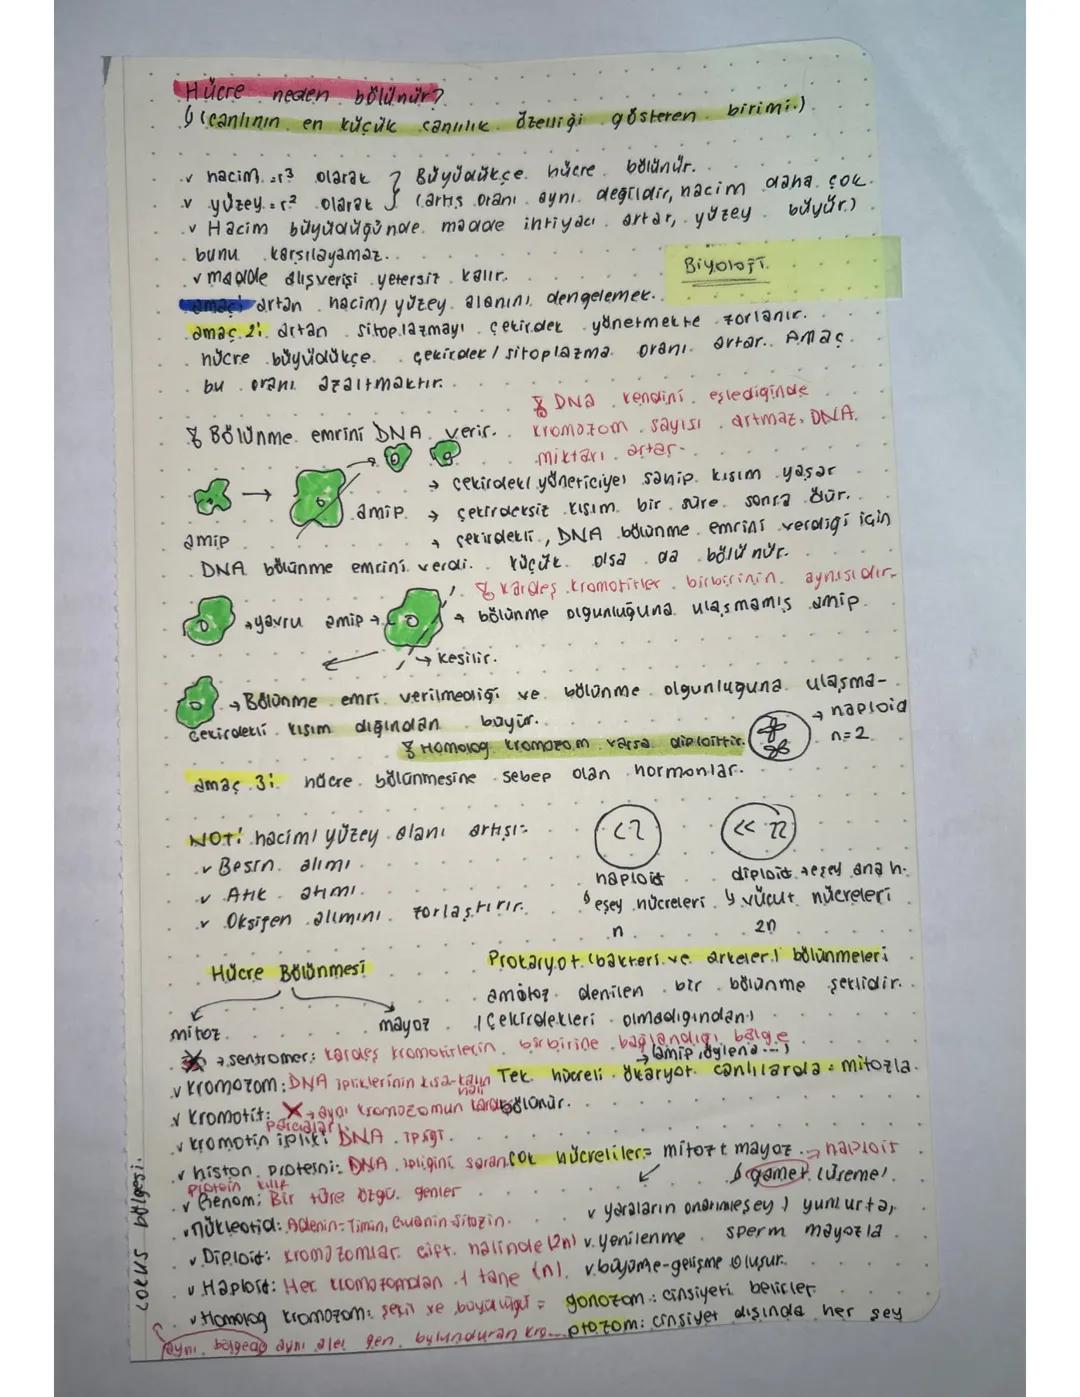 Hücre neden bölünür?
(canlının en küçük canlılık özelliği gösteren birimi.)
v hacim = r³ olarak } Büyüdükçe hücre bölünür.
v yüzey = r² olarak (artış oranı aynı değildir, hacim daha çok büyür.)
v Hacim büyüdüğünde madde ihtiyacı artar, yüzey
bunu karşılayamaz.
v madde alışverişi yetersiz kalır.
Biyoloji
amaç: artan hacim/yüzey alanını dengelemek.
amaç 2: artan sitoplazmayı çekirdek yönetmekte zorlanır.
hücre büyüdükçe çekirdek/sitoplazma oranı artar. Amaç
bu oranı azaltmaktır.
DNA kendini eşlediğinde
kromozom sayısı artmaz, DNA
miktarı artar.
Bölünme emrini DNA verir.
→ çekirdekli yöneticiye sahip kısım yaşar
amip → çekirdeksiz kısım bir süre sonra ölür.
amip
→ çekirdekli, DNA bölünme emrini verdiği için
DNA bölünme emrini verdi. küçük olsa da bölünür.
kardeş kromotitler birbirinin aynısıdır.
→ yavru amip → → bölünme olgunluğuna ulaşmamış amip
→ kesilir.
→ Bölünme emri verilmediği ve bölünme olgunluğuna ulaşma-
çekirdekli kısım dığından büyür.
Homolog kromozom varsa diploittir.
→ haploid
n=2
amaç 3: hücre bölünmesine sebep olan hormonlar.
NOT: hacim/yüzey alanı artışı:
v Besin alımı
v Atık atımı
v Oksijen alımını zorlaştırır.
haploit
eşey hücreleri
n
diploid → eşey ana h.
vücut hücreleri
2n
Hücre Bölünmesi
mitoz
mayoz
Prokaryot (bakteri ve arkeler) bölünmeleri
amitoz denilen bir bölünme şeklidir.
(Çekirdekleri olmadığından)
→ sentromer: kardeş kromotitlerin birbirine bağlandığı bölge
v kromozom: DNA ipliklerinin kısa-kalın hali
(amip, öglena ...)
Tek hücreli ökaryot canlılarda = mitozla
bölünür.
v kromotit: X → aynı kromozomun parçaları
v kromotin iplik: DNA ipliği.
v histon protesni: DNA ipliğini saran protein kılıf
çok hücreliler = mitoz + mayoz → haploit
gamet (üreme)
v Genom: Bir türe özgü genler
v nükleotid: Adenin-Timin, Guanin-Sitozin.
v yaraların onarımı
v yenilenme
v büyüme-gelişme
(eşey) yumurta,
sperm mayozla
oluşur.
v Diploit: kromozomlar çift halinde (2n)
v Haploit: Her kromozomdan 1 tane (n).
v Homolog kromozom: şekil ve büyüklüğü =
aynı bölgede aynı alel gen bulunduran kro...
gonozom: cinsiyeti belirler
otozom: cinsiyet dışında her şey
lokus bölgesi.